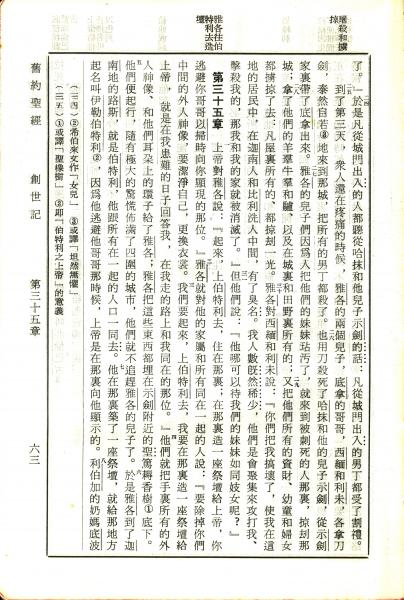 屠殺和擄掠
雅各往伯特利去造壇
了。」於是凡從城門出入的人都聽從哈抹和他兒子示劍的話；凡從城門出入的男丁都受了割禮。
到了第三天，衆人還在疼痛的時候，雅各的兩個兒子，底拿的哥哥，西緬和利未，各拿刀
劍，泰然自若④地來到那城，把所有的男丁都殺了。也用刀殺了哈抹和他的兒子示劍，從示劍
家裏帶了底拿出來。雅各的兒子們因爲人把他們的妹妹玷污了，就來到被刺死的人那裏，掠刦那
城；拿了他們的羊羣牛羣和驢，以及在城裏和田野裏所有的；又把他們所有的資財、幼童和婦女
都擄掠了去；凡屋裏所有的、都掠刦一光。雅各對西緬和利未說：「你們把我搞壞了，使我在這
地的居民中，在迦南人和比利洗人中間，有了臭名。我人數旣然稀少，他們是會聚集來攻打我、
擊殺我的，那我和我的家就被消滅了。」但他們說：「他哪可以待我們的妹妹如同妓女呢？」
第三十五章　上帝對雅各說：「起來，上伯特利去，住在那裏；在那裏造一座祭壇給上帝，你
逃避你哥哥以掃時向你顯現的那位。」雅各就對他的家屬和所有同在一起的人說：「要除掉你們
中間的外人神像，要潔淨自己，更換衣裳。我們要起來，上伯特利去，我要在那裏造一座祭壇給
上帝，就是在我患難的日子回答我，在我走的路上和我同在的那位。」他們就把手裏所有的外
人神像、和他們耳朶上的環子給了雅各；雅各把這些東西都埋在示劍附近的聖篤耨香樹①底下。
他們便起行，隨有極大的驚慌佈滿了四圍的城市，他們就不追趕雅各的兒子了。於是雅各到了迦
南地的路斯，就是伯特利，他跟所有在一起的人口一同去。他在那裏築了一座祭壇，就給那地方
起名叫伊勒伯特利②，因爲他逃避他哥哥那時候，上帝是在那裏向他顯示的。利伯加的奶媽底波
（三四）②希伯來文作「女兒」
（三五）①或譯「聖橡樹」　②卽「伯特利之上帝」的意義
舊約聖經　創世記　第三十五章　六三